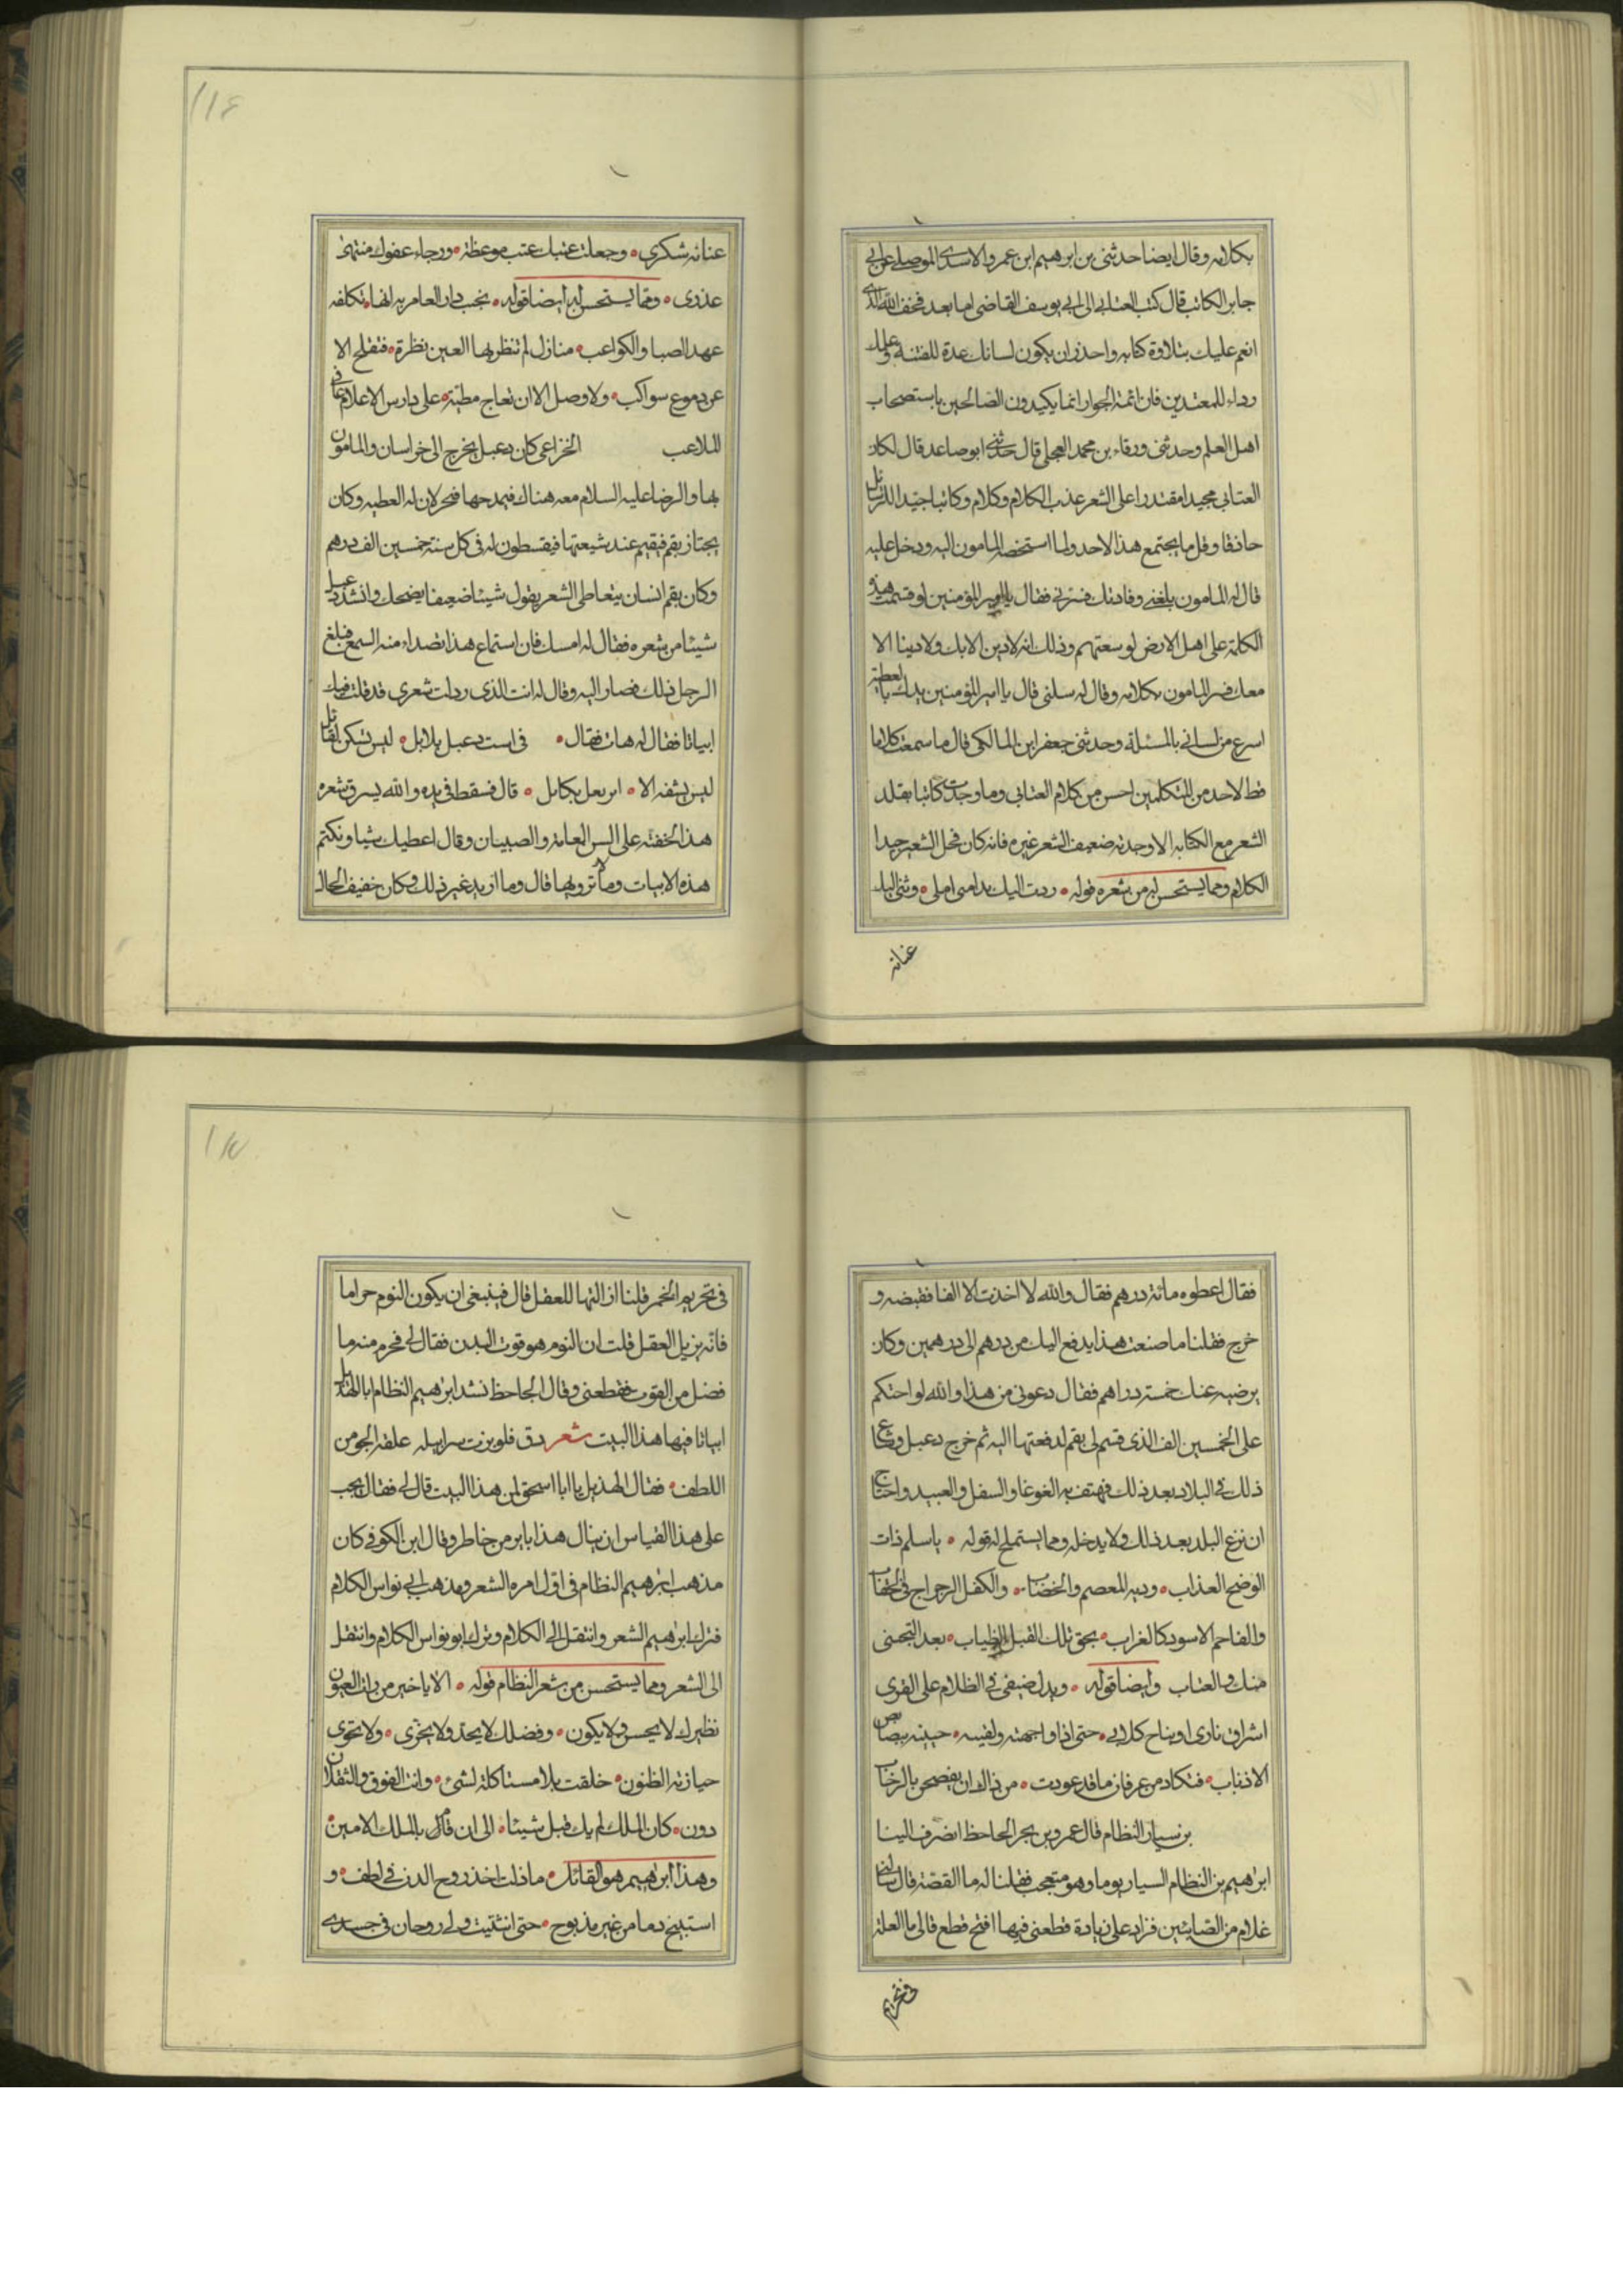 بكلامه وقال ايضا حدثنى بن ابرهيم ابن عمرو الاسدى الموصلى عن ابى
جابر الكاتب قال كتب العتابى الى ابى يوسف القاضى اما بعد فخف الله الذى
انعم عليك بتلاوة كتابه واحذر ان يكون لسانك عدة للفتنة وعلمك
رداء للمعتدين فان ائمة الجور انما يكيدون الصالحين باستصحاب
اهل العلم وحدثنى ورقاء بن محمد العجلى قال حدثنى ابوصاعد قال لكان
العتابى مجيدا مقتدرا على الشعر عذب الكلام وكلام وكاتبا جيد الرسائل
حاذقا وقل ما يجتمع هذا الاحد ولما استخصه المامون اليه ودخل عليه
قال له المامون بلغنى وفادتك فسرنى فقال يا امير المؤمنين لو قسمت هذه
الكلمة على اهل الارض لوسعتهم وذلك انه لا دين الا بك ولا دينا الا
معك فسر المامون بكلامه وقال له سلنى قال يا امير المؤمنين يدك بالعطية
اسرع من لسانى بالمسئلة وحدثنى جعفر ابن المالكى قال ما سمعت كلاما
قط لاحد من المتكلمين احسن من كلام العتابى وما وجدت كاتبا يقلد
الشعر مع الكتابه الا وجدته ضعيف الشعر غيره فانه كان فحل الشعر جيد
الكلام ومما يستحسن له من شعره قوله • ردت اليك ندامى املى • وثنى اليك
عنانه
عنانه شكرى • وجعلت عتبك عتب موعظة • ورجاء عفوك منتهى
عذرى • ومما يستحسن له ايضا قوله • بجنب دار العامريه انها • تكلفه
عهد الصبا والكواعب • منازل لم تنظر بها العين نظرة • فتقلح الا
عن دموع سواكب • ولا وصل الا ان تعاج مطية • على دارس الاعلام عافى
الملاعب الخزاعى كان دعبل يخرج الى خراسان والمامون
بها والرضا عليه السلام معه هناك فيمدحها فيجزلان له العطيه وكان
يجتاز بقم فيقيم عند شيعتها فيقسطون له فى كل سنة خمسين الف درهم
وكان بقم انسان يتعاطى الشعر يقول شيئا ضعيفا يضحك وانشد دعبل
شيئا من شعره فقال له امسك فان استماع هذا تصداء منه السمع فبلغ
الرجل ذلك فصار اليه وقال له انت الذى رددت شعرى قد قلت فيك
ابياتا فقال له هات فقال • فى است دعبل بلابل • ليس تسكن لقائل
ليس يشفه الا • اير بعل بكابل • قال فسقط فى يده والله يسرق شعره
هذا لخفته على السن العامة والصبيان وقال اعطيك شيا وتكتم
هذه الابيات وما ترويها قال وما ازيد غير ذلك وكان خفيف الحال
فقال اعطوه مائة درهم فقال والله لا اخذت الا الفا فقبضه و
خرج فقلنا ما صنعت هذا يدفع اليك من درهم الى درهمين وكان
يرضيه عنك خمسة دراهم فقال دعونى من هذا والله لو احتكم
على الخمسين الف الذى قسم لى بقم لدفعتها اليه ثم خرج دعبل وشاع
ذلك فى البلاد بعد ذلك فهتف به الغوغا والسفل والعبيد واحتاج
ان نزع البلد بعد ذلك ولا يدخله ومما يستملح له قوله • ياسلم ذات
الوضح العذاب • وربه المعصم والخضاب • والكفل الرجراج فى الحقاب
والفاحم الاسود كالغراب • بحق تلك القبل الطياب • بعد التجنى
منك والعتاب وايضا قوله • ويدل ضيفى فى الظلام على القرى
اشراق نارى او نباح كلابى • حتى اذا واجهته ولقيه • حيينه ببصابص
الاذناب • فتكاد من عرفان ما قد عودت • من ذاك ان يفصحن بالرخاب
بن سيار النظام قال عمرو بن بحر الجاحظ انصرف الينا
ابرهيم بن النظام السيار يوما وهو متعجب فقلنا له ما القصة قال سالنى
غلام من الصايئين فزاد على زيادة قطعنى فيها افتح قطع قال لى ما العلة
فى تحريم
فى تحريم الخمر قلنا ازالتها للعقل قال فينبغى ان يكون النوم حراما
فانه يزيل العقل قلت ان النوم هو قوت البدن فقال لى فحرم منه ما
فضل من القوت فقطعنى وقال الجاحظ نشد ابرهيم النظام ابا الهذيل
ابياتا فيها هذا البيت شعر دق فلو بزت سرابيله علقه الجو من
اللطف • فقال الهذيل يا ابا اسحق لمن هذا البيت قال لى فقال يجب
على هذا القياس ان ينال هذا باير من خاطر وقال ابن الكوفى كان
مذهب ابرهيم النظام فى اول امره الشعر ومذهب ابى نواس الكلام
فترك ابرهيم الشعر وانتقل الى الكلام وترك ابو نواس الكلام وانتقل
الى الشعر ومما يستحسن من شعر النظام قوله • الا يا خير من رات العيون
نظيرك لا يحس ولا يكون • وفضلك لا يحد ولا يجزى • ولا تحوى
حيازته الظنون • خلقت بلا مستاكلة لشئ • وانت الفوق والثقلان
دون • كان الملك لم يك قبل شيئا • الى ان قام بالملك الامين •
وهذا ابرهيم هو القائل • ما ذلت اخذ روح الدن فى لطف • و
استبيح دما من غير مذبوح • حتى انثنيت ولى روحان فى جسدى